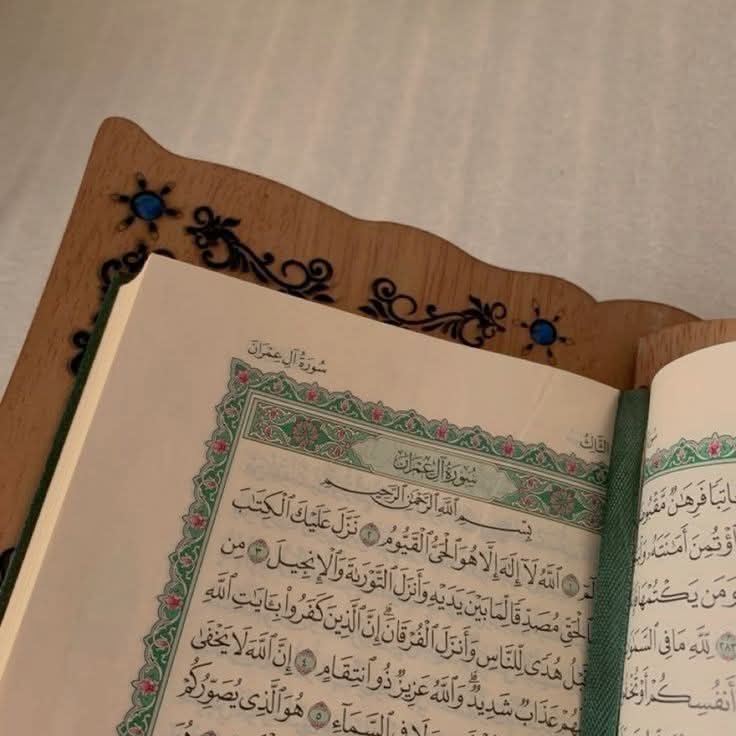 فَرِهَٰنٌ
ٱؤْتُمِنَ أَمَٰنَتَهُۥ
وَمَن يَكْتُمْهَا
٢٨٣ لِّلَّهِ مَا فِى
أَنفُسِكُمْ أَوْ
سُورَةُ آلِ عِمْرَانَ
سُورَةُ آلِ عِمْرَانَ
بِسْمِ ٱللَّهِ ٱلرَّحْمَٰنِ ٱلرَّحِيمِ
١ ٱللَّهُ لَآ إِلَٰهَ إِلَّا هُوَ ٱلْحَىُّ ٱلْقَيُّومُ ٢ نَزَّلَ عَلَيْكَ ٱلْكِتَٰبَ
بِٱلْحَقِّ مُصَدِّقًا لِّمَا بَيْنَ يَدَيْهِ وَأَنزَلَ ٱلتَّوْرَىٰةَ وَٱلْإِنجِيلَ ٣ مِن
قَبْلُ هُدًى لِّلنَّاسِ وَأَنزَلَ ٱلْفُرْقَانَۗ إِنَّ ٱلَّذِينَ كَفَرُوا۟ بِـَٔايَٰتِ ٱللَّهِ
لَهُمْ عَذَابٌ شَدِيدٌۗ وَٱللَّهُ عَزِيزٌ ذُو ٱنتِقَامٍ ٤ إِنَّ ٱللَّهَ لَا يَخْفَىٰ
وَلَا فِى ٱلسَّمَآءِ ٥ هُوَ ٱلَّذِى يُصَوِّرُكُمْ